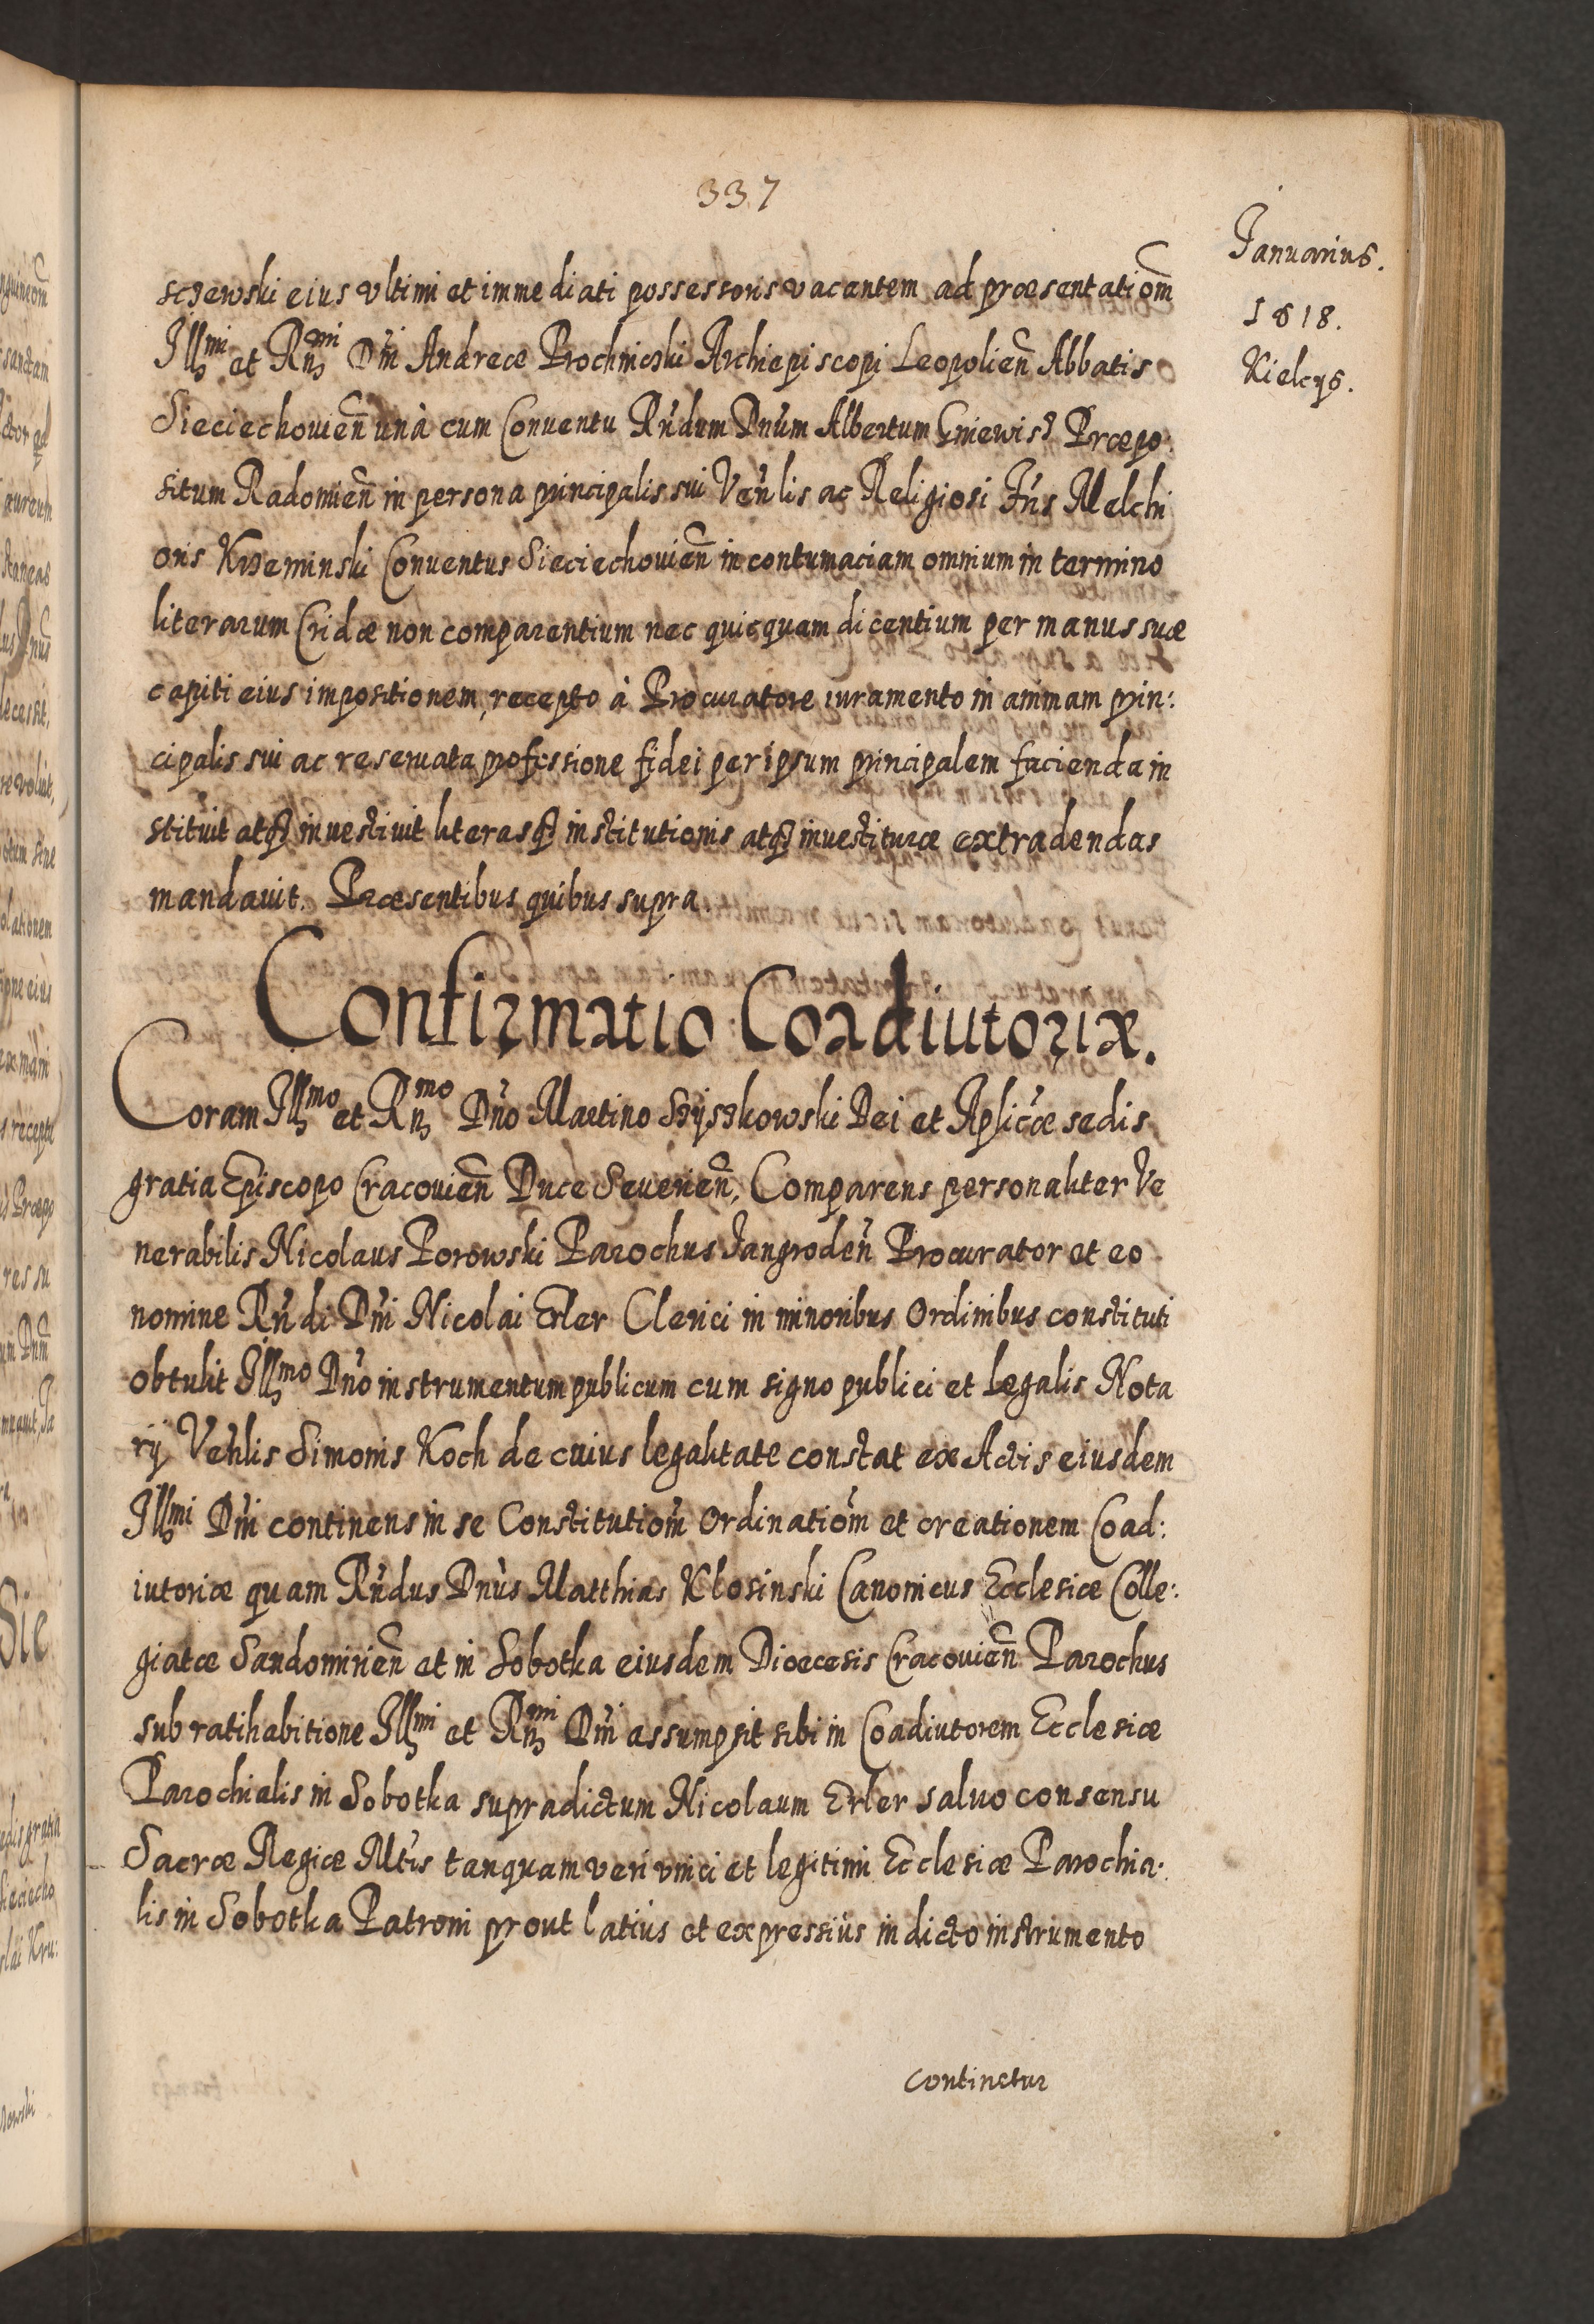 337
Januarius.
1618.
Kielcys.
sczewski eius vltimi et immediati possessoris vacantem ad præsentatiom̃
Illmi et Rmi Dñi Andreæ Prochnicski Archiepiscopi Leopolien̄ Abbatis
Sieciechouien̄ unà cum Conuentu Rñdum Dnũm Albertum Gniewisz Præpo:
situm Radomien̄ in persona principalis sui Veñlis ac Religiosi Fr̃is Melchi
oris Krzeminski Conuentus Sieciechouien̄ in contumaciam omnium in termino
literarum Cridæ non comparentium nec quicquam dicentium per manus suæ
capiti eius impositionem, recepto à Procuratore iuramento in animam prin:
cipalis sui ac reseruata professione fidei per ipsum principalem facienda in
stituit atqȝ inuestiuit literasqȝ institutionis atqȝ inuestituræ extradendas
mandauit. Præsentibus quibus supra.
Confirmatio Coadiutoriæ.
Coram Illmo et Rmo Dño Martino Szyszkowski Dei et Aplicæ̃ sedis
gratia Episcopo Cracouien̄ Duce Seuerien̄, Comparens personaliter Ve
nerabilis Nicolaus Porowski Parochus Jangroden̄ Procurator et eo
nomine Rñdi Dñi Nicolai Erler Clerici in minoribus Ordinibus constituti
obtulit Illmo Dño instrumentum publicum cum signo publici et Legalis Nota
rÿ Veñlis Simonis Koch de cuius legalitate constat ex Actis eiusdem
Illmi Dñi continens in se Constitutiom̃ Ordinatiom̃ et creationem Coad:
iutoriæ quam Rñdus Dnũs Matthias Klosinski Canonicus Ecclesiæ Colle:
giatæ Sandomirien̄ et in Sobotka eiusdem Dioecesis Cracouien̄ Parochus
sub ratihabitione Illmi et Rmi Dñi assumpsit sibi in Coadiutorem Ecclesiæ
Parochialis in Sobotka supradictum Nicolaum Erler saluo consensu
Sacræ Regiæ Mt̃is tanquam veri vnici et legitimi Ecclesiæ Parochia:
lis in Sobotka Patroni prout latius et expressius in dicto instrumento
continetur